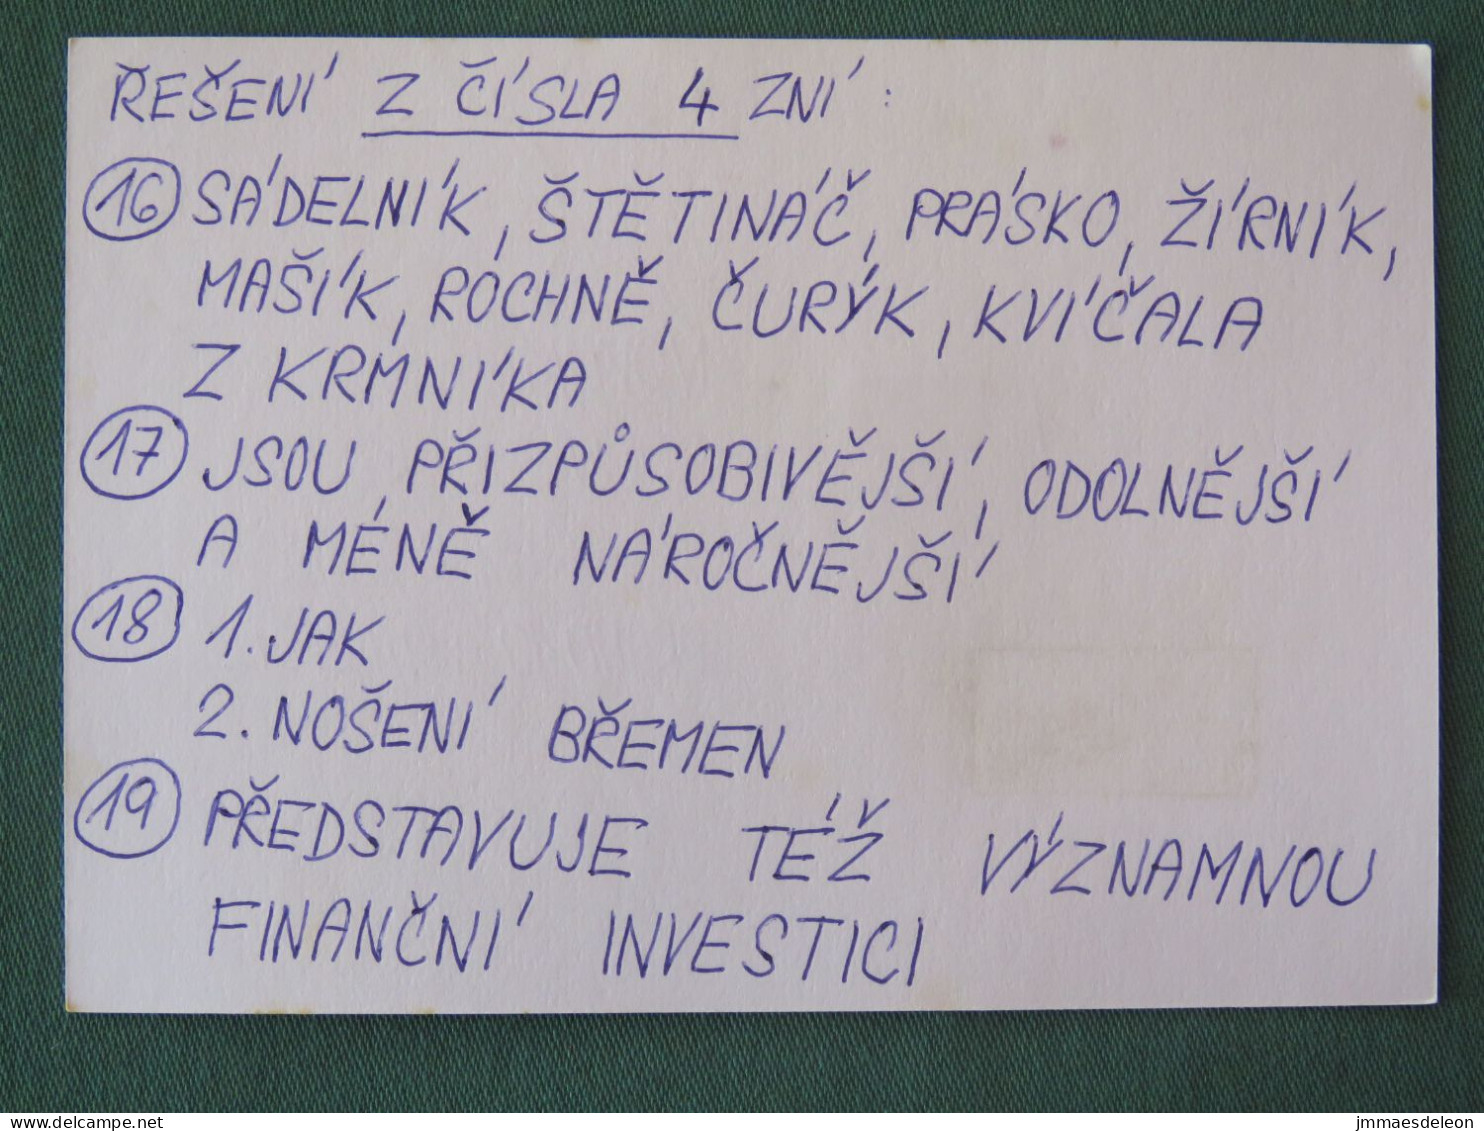 ŘEŠENÍ Z ČÍSLA 4 ZNÍ:
16 SÁDELNÍK, ŠTĚTINÁČ, PRÁSKO, ŽÍRNÍK,
MAŠÍK, ROCHNĚ, ČURÝK, KVÍČALA
Z KRMNÍKA
17 JSOU PŘIZPŮSOBIVĚJŠÍ, ODOLNĚJŠÍ
A MÉNĚ NÁROČNĚJŠÍ
18 1. JAK
2. NOŠENÍ BŘEMEN
19 PŘEDSTAVUJE TÉŽ VÝZNAMNOU
FINANČNÍ INVESTICI
www.delcampe.net
jmmaesdeleon